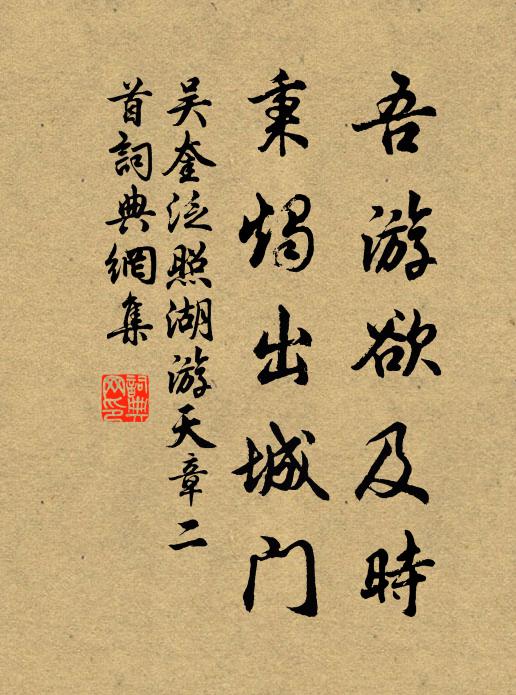 吾游欲及時
秉燭出城门
吴奎泛照湖游天章二
首詞典網集
詞典
网印